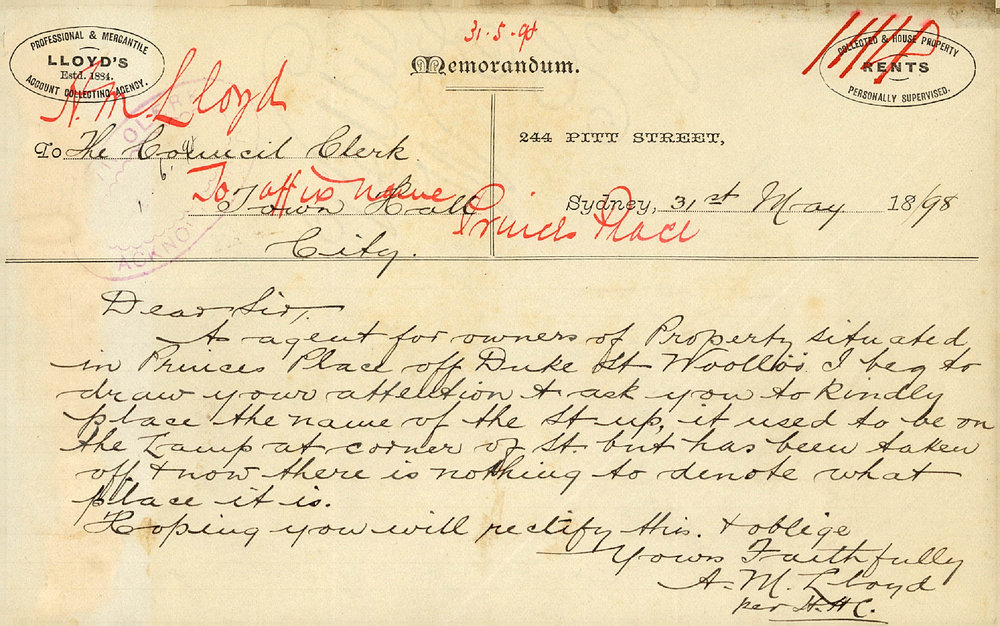 31·5·98
PROFESSIONAL & MERCANTILE
LLOYD'S
Estd. 1884.
ACCOUNT COLLECTING AGENCY.
Memorandum.
COLLECTED & HOUSE PROPERTY
RENTS
PERSONALLY SUPERVISED.
A. M. Lloyd
244 PITT STREET,
To The Council Clerk
To affix name
Princes Place
Town Hall
Sydney, 31st May 1898
City.
ACKNO
Dear Sir,
As agent for owners of Property situated
in Princes Place off Duke St Woolloo. I beg to
draw your attention & ask you to kindly
place the name of the St up, it used to be on
the Lamp at corner of St. but has been taken
off & now there is nothing to denote what
place it is.
Hoping you will rectify this. & oblige
Yours Faithfully
A. M. Lloyd
per H.H.C.